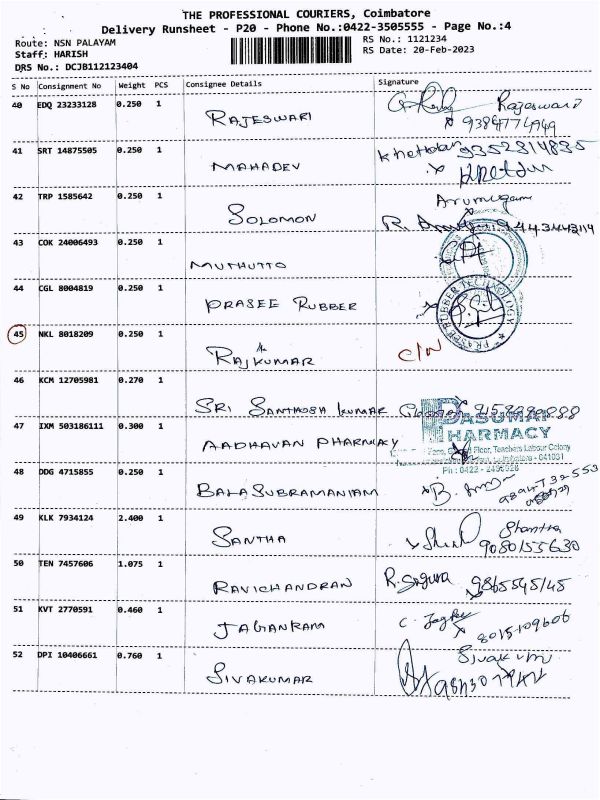 THE PROFESSIONAL COURIERS, Coimbatore
Delivery Runsheet - P20 - Phone No.:0422-3505555 - Page No.:4
Route: NSN PALAYAM RS No.: 1121234
Staff: HARISH RS Date: 20-Feb-2023
DRS No.: DCJB112123404
S No Consignment No Weight PCS Consignee Details Signature
40 EDQ 23233128 0.250 1 RAJESWARI Rajeswari
41 SRT 14875505 0.250 1 MAHADEV 9352314835
42 TRP 1585642 0.250 1 SOLOMON Arumugam
43 COK 24006493 0.250 1 MUTHUTTO
44 CGL 8004819 0.250 1 PRASEE RUBBER
RUBBER TECHNOLOGY
45 NKL 8018209 0.250 1 RAJKUMAR C/N
46 KCM 12705981 0.270 1 SRI SANTHOSH KUMAR
47 IXM 503186111 0.300 1 AADHAVAN PHARMACY
PHARMACY
Floor, Teachers Labour Colony
- 641031
Ph : 0422 -
48 DDG 4715855 0.250 1 BALASUBRAMANIAM
49 KLK 7934124 2.400 1 SANTHA Shantha
9080155630
50 TEN 7457606 1.075 1 RAVICHANDRAN
51 KVT 2770591 0.460 1 JAGANRAM
8015109606
52 DPI 10406661 0.760 1 SIVAKUMAR Sivakumar